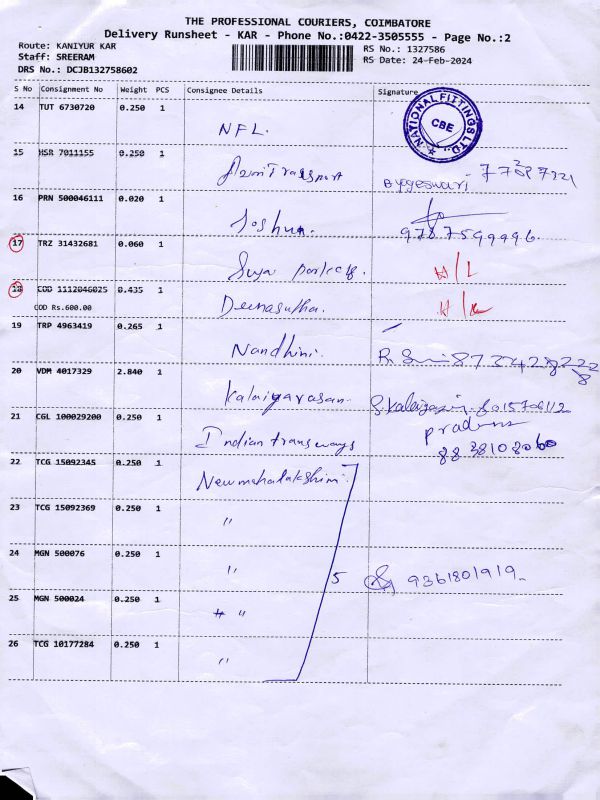 THE PROFESSIONAL COURIERS, COIMBATORE
Delivery Runsheet - KAR - Phone No.:0422-3505555 - Page No.:2
Route: KANIYUR KAR
Staff: SREERAM
DRS No.: DCJB132758602
RS No.: 1327586
RS Date: 24-Feb-2024
S No Consignment No Weight PCS Consignee Details Signature
14 TUT 6730720 0.250 1 NFL.
NATIONAL FITTINGS LTD. CBE
15 HSR 7011155 0.250 1
16 PRN 500046111 0.020 1 Joshua. 9787599996.
17 TRZ 31432681 0.060 1
18 COD 1112046025 0.435 1
COD Rs.600.00
19 TRP 4963419 0.265 1 Nandhini.
20 VDM 4017329 2.840 1 Kalaigarasan.
21 CGL 100029200 0.250 1 Indian transways
22 TCG 15092345 0.250 1 Newmahalakshmi
23 TCG 15092369 0.250 1 "
24 MGN 500076 0.250 1 " 5 9361801919
25 MGN 500024 0.250 1 "
26 TCG 10177284 0.250 1 "